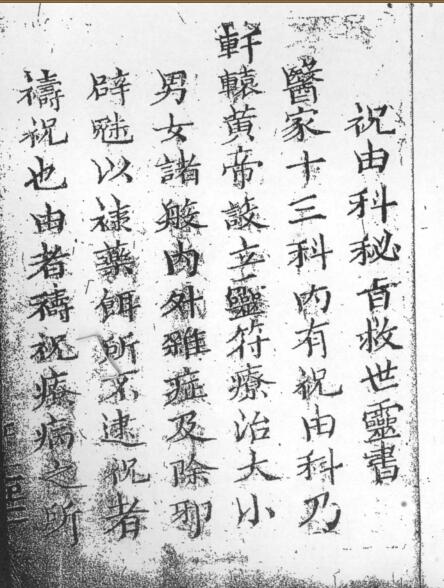 祝由科秘旨救世靈書
醫家十三科內有祝由科乃
軒轅黃帝設立靈符療治大小
男女諸般內外雜症及除邪
辟魅以藥餌所不逮祝者
禱祝也由者禱祝療病之所